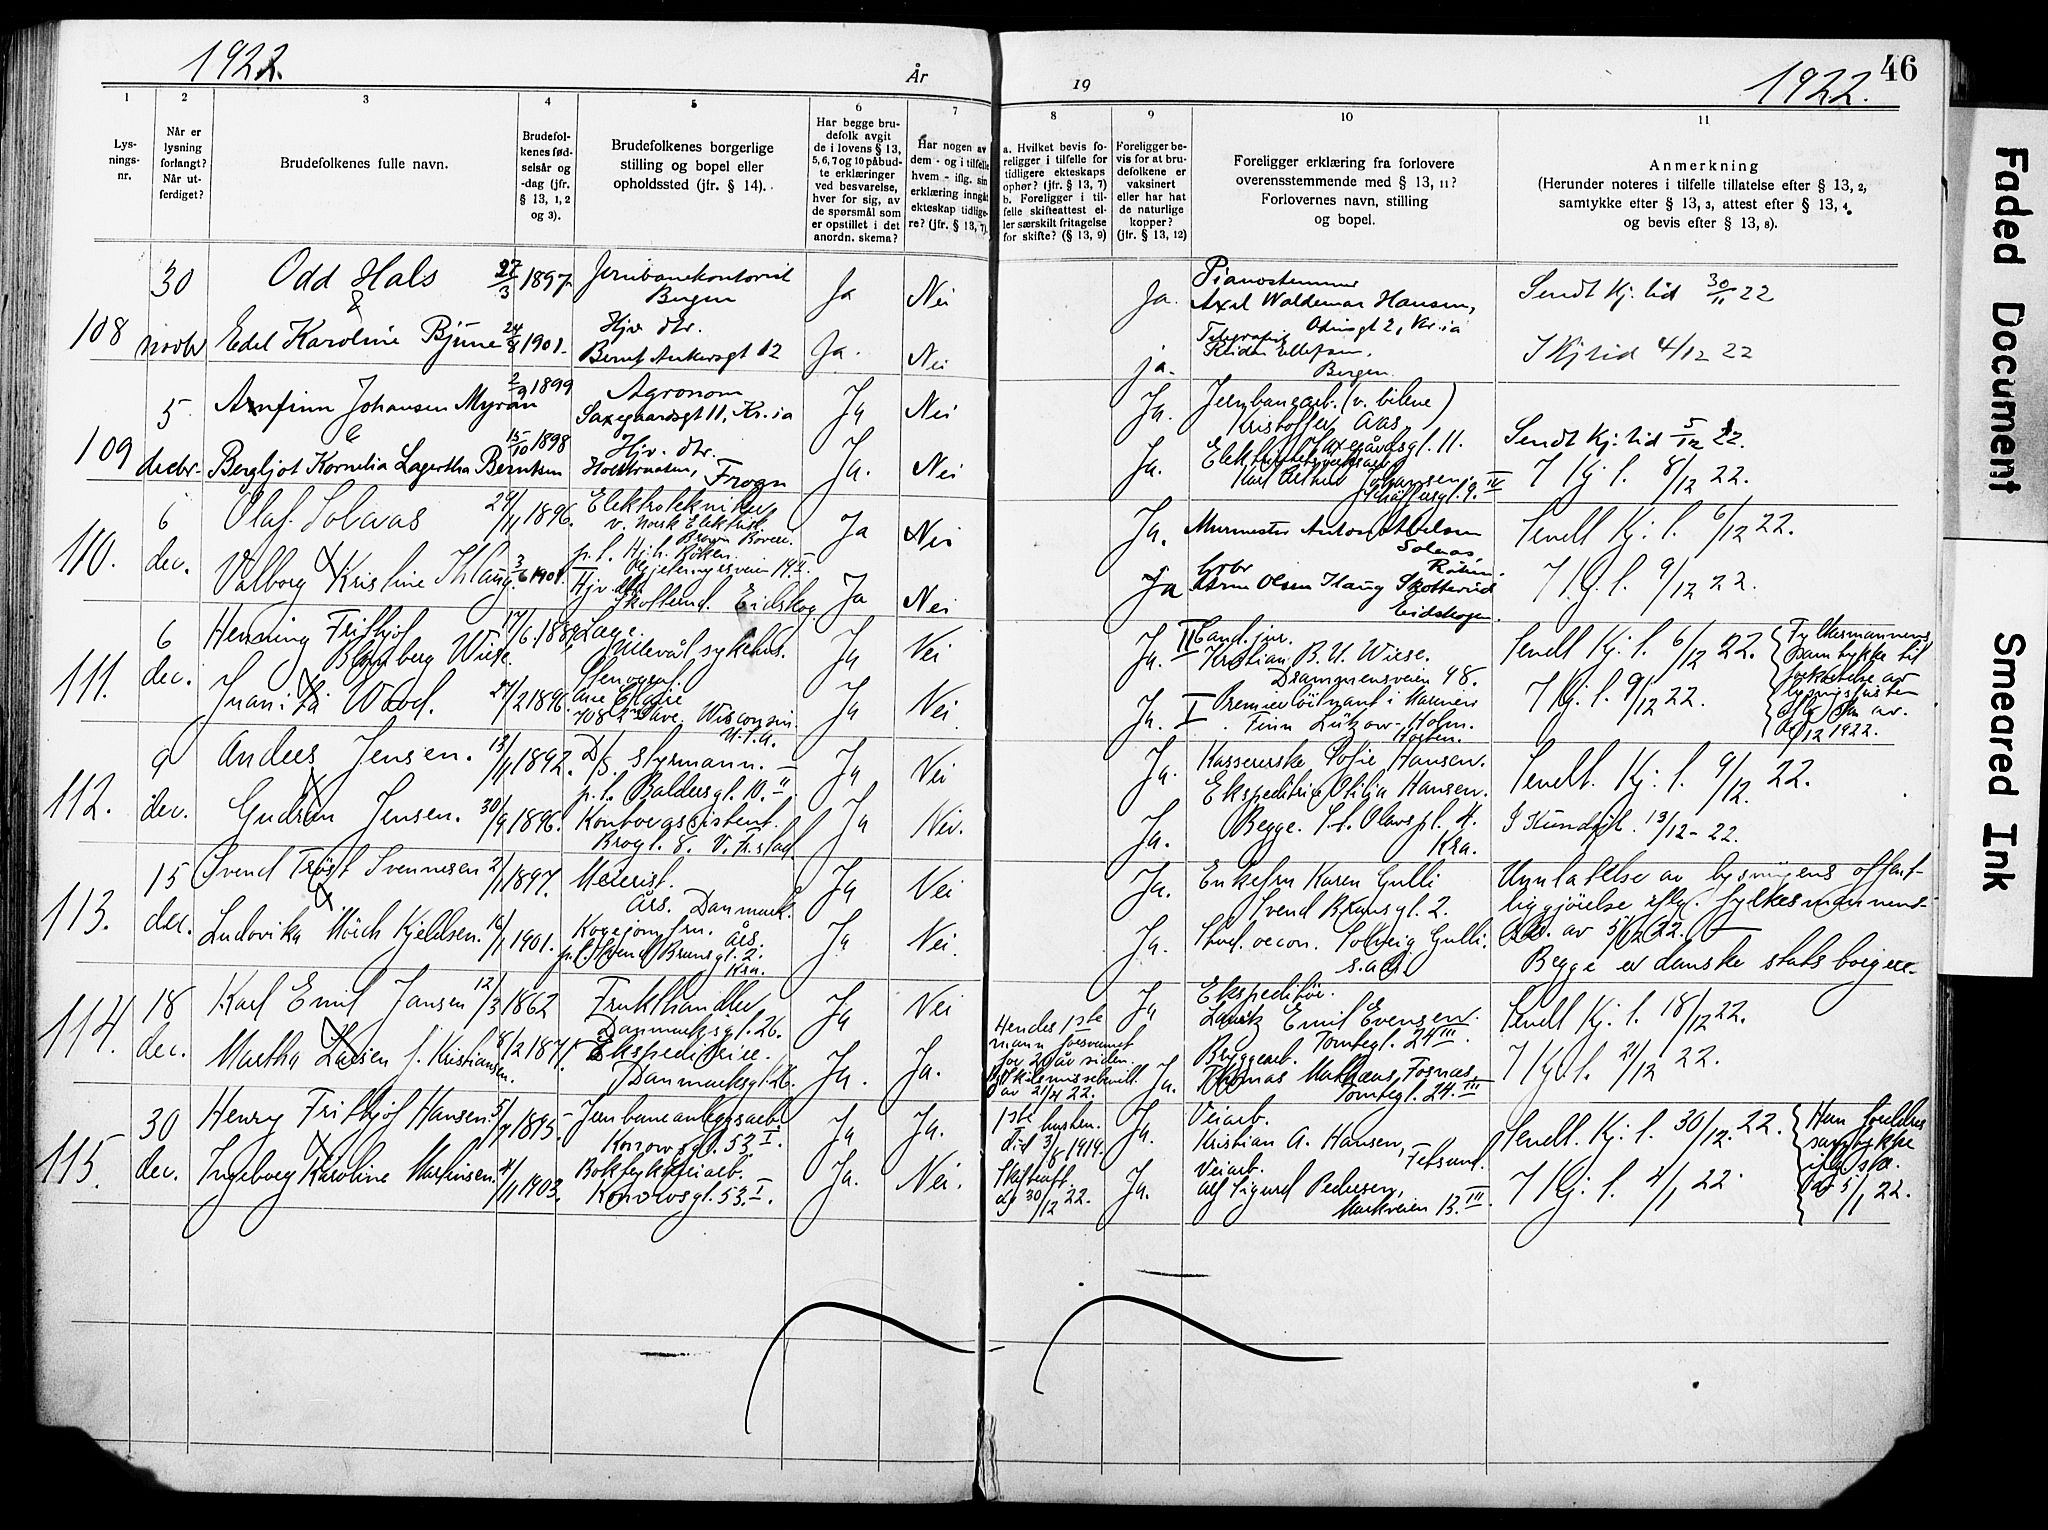 1922.
År
19
1922.
46
1
2
3
4
5
6
7
8
9
10
11
Lys-
nings-
nr.
Når er
lysning
forlangt?
Når ut-
ferdiget?
Brudefolkenes fulle navn.
Brudefol-
kenes fød-
selsår og
-dag (jfr.
§ 13, 1, 2
og 3).
Brudefolkenes borgerlige
stilling og bopel eller
opholdssted (jfr. § 14).
Har begge bru-
defolk avgit
de i lovens § 13,
5, 6, 7 og 10 påbud-
te erklæringer
ved besvarelse,
hver for sig, av
de spørsmål som
er opstillet i det
anordn. skema?
Har nogen av
dem - og i tilfelle
hvem - iflg. sin
erklæring inngåt
ekteskap tidlige-
re? (jfr. § 13, 7).
a. Hvilket bevis fo-
religger i tilfelle for
tidligere ekteskaps
ophør? (jfr. § 13, 7)
b. Foreligger i til-
felle skifteattest el-
ler særskilt fritagelse
for skifte? (§ 13, 9)
Foreligger be-
vis for at bru-
defolkene er
vaksinert
eller har hat
de naturlige
kopper?
(jfr. § 13, 12)
Foreligger erklæring fra forlovere
overensstemmende med § 13, 11?
Forlovernes navn, stilling
og bopel.
Anmerkning
(Herunder noteres i tilfelle tillatelse efter § 13, 2,
samtykke efter § 13, 3, attest efter § 13, 4.
og bevis efter § 13, 8).
108
30
novbr
Odd Hals
&
Edel Karoline Bjune
27/3 1897
24/8 1901.
Jernbanekontorist
Bergen
Hjv. dtr.
Bernt Ankersgt 12
Ja
Ja.
Nei
Nei
Ja.
ja.
Pianostemmer
Axel Waldemar Hansen,
Odinsgt 2, Kr.ia
Telegrafist
Ellefsen,
Bergen.
Sendt Kj. tid 30/11 22
I Kj tid 4/12 22
109
5.
decbr.
Arnfinn Johansen Myran
&
Bergljot Kornelia Lagertha Berntsen
2/9 1899
15/10 1898
Agronom
Saxegaardsgt 11, Kr.ia
Hjv. dtr.
Frogn
Ja
Ja.
Nei
Nei
Ja.
Ja.
Jernbanearb. (v. bilene)
Kristoffer Aas
Saxegårdsgt. 11.
Karl Arthur Johansen
Schäffersgt. 9. IV
Sendt Kj. tid 5/12 22.
I Kj. t. 8/12 22.
110.
6
dec.
Olaf. Solaas
Valborg Kristine Ihlaug.
29/11 1896.
3/6 1901.
Elektrotekniker
v. Norsk Elektrisk
Brown Boveri.
p. t. Hjh. Røken.
Gjeteringsveien 14. II
Hjv. dtr.
Skotterud. Eidskog
Ja
Ja
Nei
Nei
Ja.
Ja
Murmester Anton Abelsen
Solaas,
Røken.
Gbr
Arne Olsen Ilaug Skotterud
Eidskogen.
Sendt Kj. t. 6/12 22.
I Kj. t. 9/12 22.
111.
6
dec.
Henning Frithjof
Blomberg Wiese.
Juanita Wood.
17/6. 1889
27/2 1896.
Læge.
Ullevål sykehus.
Eau Claire
708 2nd Ave. Wisconsin.
U.S.A.
Ja
Ja
Nei
Nei
Ja.
Ja.
II Cand. jur.
Kristian B. U. Wiese.
Drammensveien 98.
I Premierløitnant i Marinen
Finn Lützow-Holm.
Horten.
Sendt Kj. t. 6/12 22.
I Kj. t. 9/12 22.
Fylkesmannens
samtykke til
forkortelse av
lysningsfristen
iflg. skr. av
6/12 1922.
112.
9
dec.
Anders Jensen.
Gudrun Jensen.
13/11 1892.
30/9 1896.
D/S. styrmann. —
p. t. Baldersgt. 10. II
Kontorassistent.
Brogt. 8. V. Fr.stad.
Ja
Ja
Nei
Nei.
Ja.
Ja.
Kassererske Sofie Hansen.
Ekspeditrice Otilia Hansen.
Begge. St. Olavs pl. 4.
Kra.
Sendt. Kj. t. 9/12. 22.
I Kundgj. t. 13/12 - 22.
113.
15
dec.
Svend Trøst Svennesen
Ludovika Mörch Kjeldsen.
2/1 1897.
16/1 1901.
Meierist.
Års. Danmark.
Kogejomfru.
Års.
p. t. Svend Brunsgt. 2.
Kra.
Ja
Ja
Nei
Nei.
Ja.
Ja.
Enkefru Karen Gulli
Svend Brunsgt. 2.
Stud. oecon. Solveig Gulli.
s. ads.
Unnlatelse av lysningens offent-
liggjøielse iflg. fylkesmannens
skr. av 5/12 22.
Begge er danske statsborgere.
114.
18
dec.
Karl Emil Jansen
Martha Larsen f. Kristiansen.
12/3 1862
8/2 1871.
Frukthandler
Danmarksgt. 26.
Ekspeditrice.
Danmarksgt. 26.
Ja
Ja.
Nei
Ja.
Hendes 1ste
mann forsvunnet
for 20 år siden.
Skilsmissebevill.
av 21/4 22.
Ja
Ja.
Ekspeditør.
Lauritz Emil Evensen.
Tomtegt. 24 III
Bryggearb.
Thomas Mathæus Fosnæs.
Tomtegt. 24. III
Sendt Kj. t. 18/12 22.
I Kj. t. 21/12 22.
115.
30
dec.
Henry Frithjof Hansen
Ingeborg Karoline Martinsen.
5/7 1895
4/11 1903.
Jernbaneanleggsarb.
Konowsgt. 53. I
Boktrykkeriarb.
Konowsgt. 53. I
Ja
Ja.
Ja.
Nei.
1ste hustru.
død 3/8 1919.
Skifteatt.
dg 30/12 22.
Ja.
Ja.
Veiarb.
Kristian A. Hansen,
Fetsund.
Veiarb.
Alf Sigurd Pedersen,
Markveien 13. III
Sendt. Kj. t. 30/12. 22.
I Kj. t. 4/1 22.
Hun foreldres
samtykke
iflg. skr.
av 5/1 22.
Faded Document
Smeared Ink